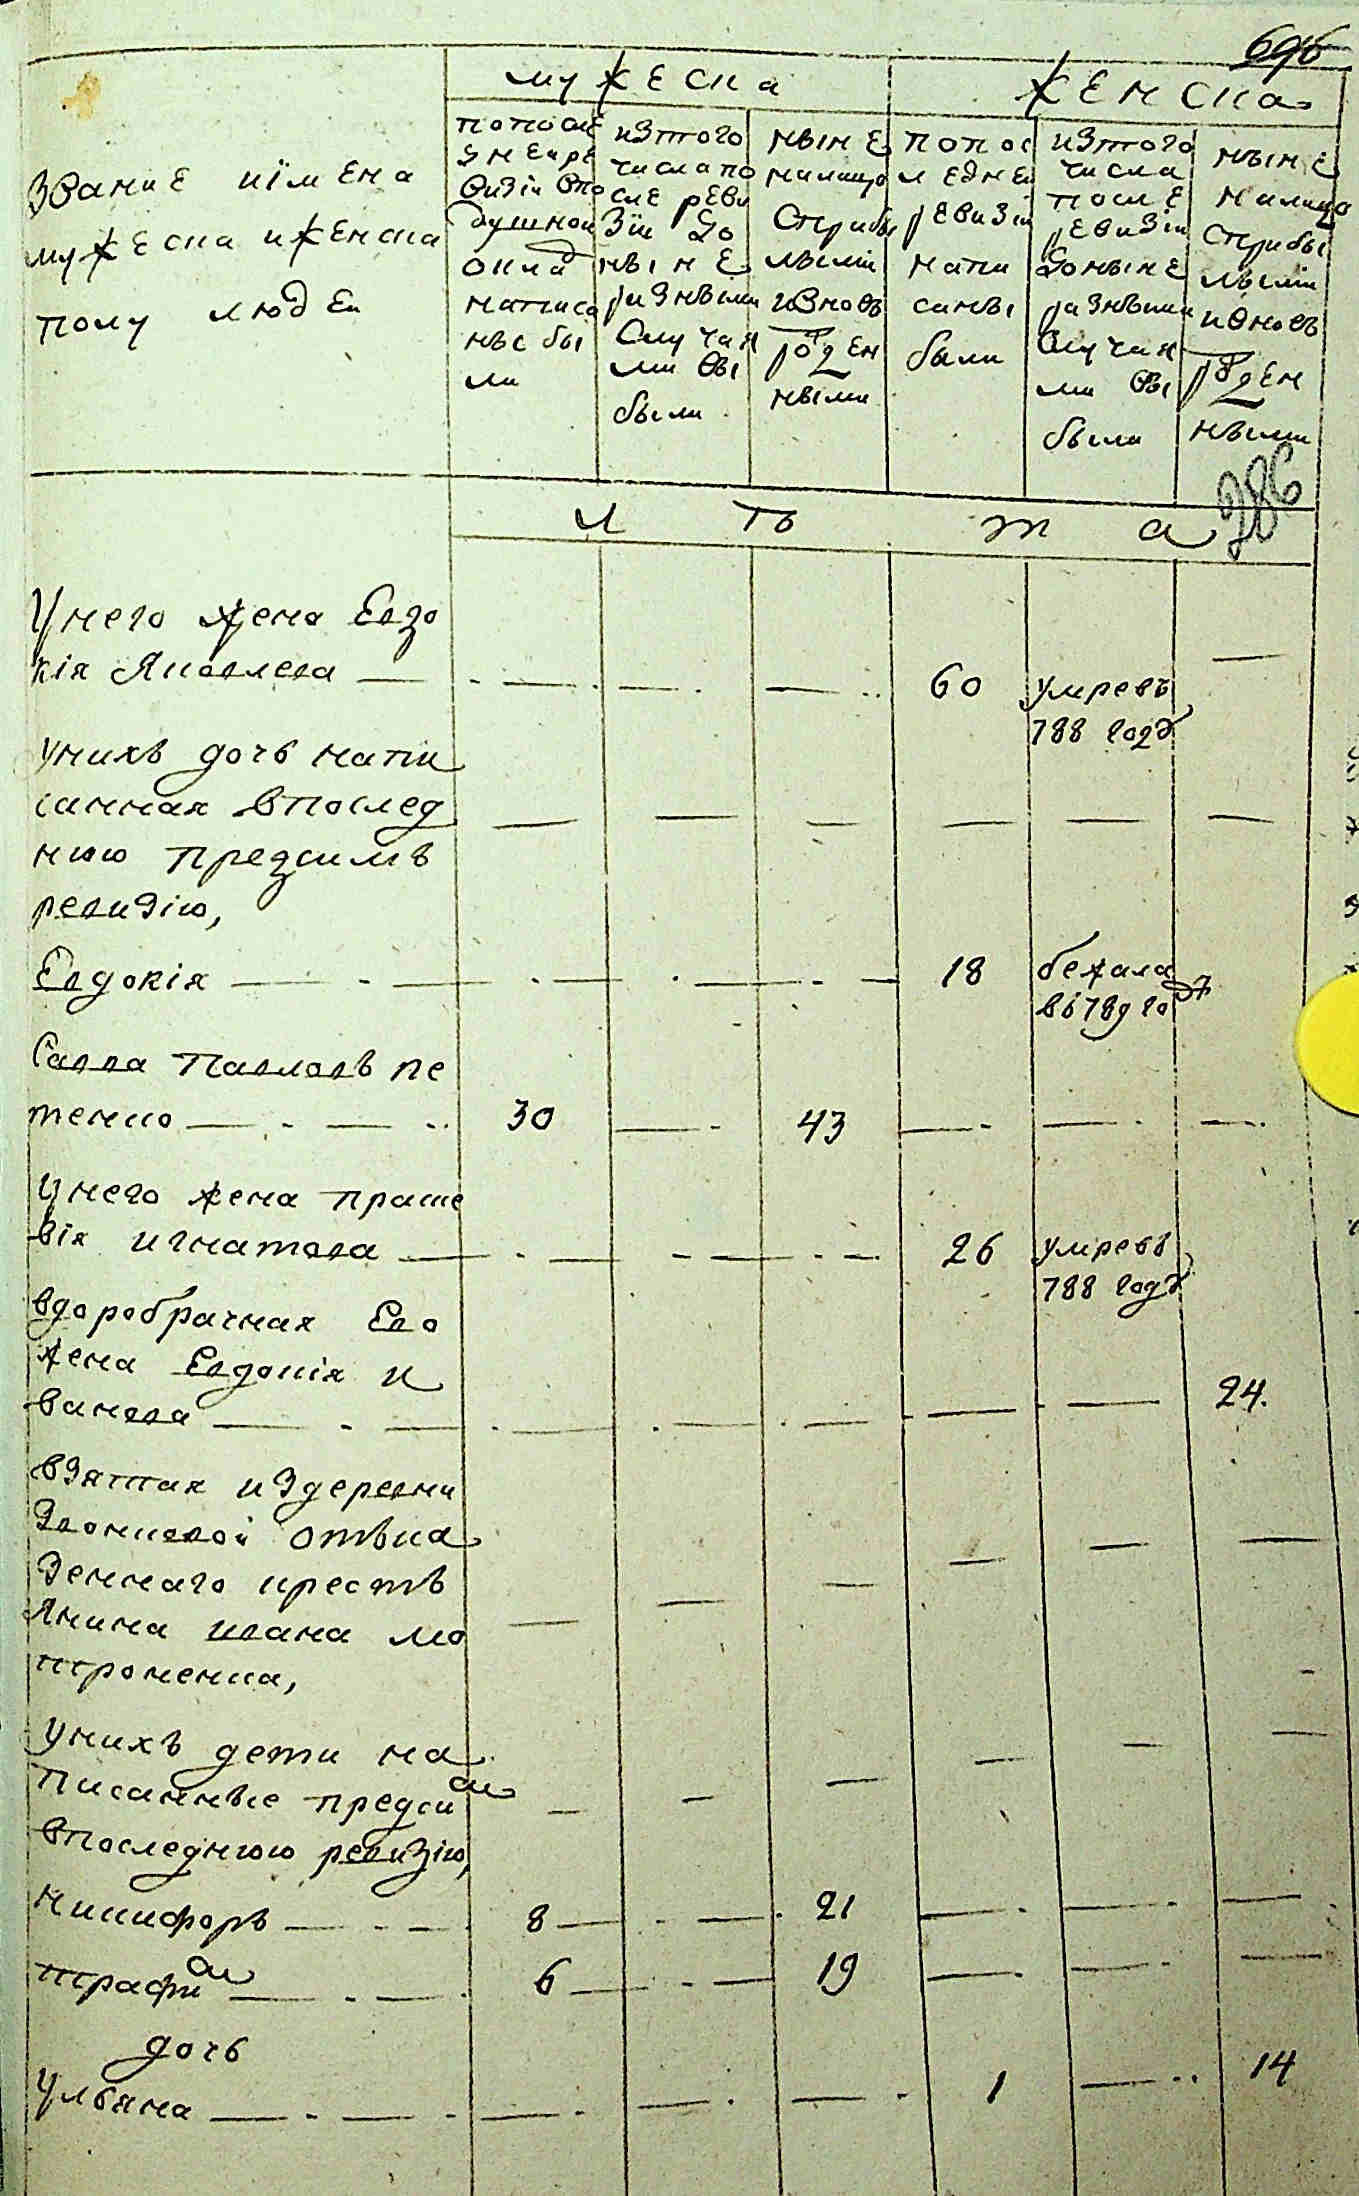 696
мужеска
женска
Звание иімена
мужеска иженска
полу людей
попосле
днейре
визіи впо
душной
оклад
написа
ные бы
ли
изтого
числа по
сле реви
зіи до
ныне
разными
случая
ми вы
были
ныне
налицо
сприбы
лыми
ивновь
рожден
ными
попос
ледней
ревизіи
напи
саны
были
изтого
числа
после
ревизіи
доныне
разными
случая
ми вы
были
ныне
налицо
сприбы
лыми
ивновь
рожден
ными
286
лѣта
Унего жена Евдо
кія Яковлева 60 умре въ
788 годѣ
унихъ дочь напи
санная впослед
нюю предсимъ
ревизію,
Евдокія 18 бежала
въ 789 го
Савва Павловъ пе
тенко 30 43
Унего жена праске
вія игнатова 26 умре въ
788 годѣ
вдоробрачная Ево
жена Евдокія и
ванова 24.
взятая издеревни
отъка
зеннаго крестъ
янина ивана ма
троненка,
унихъ дети на
писанные предсим
впоследнюю ревизію,
никифоръ 8 21
трафим 6 19
дочь
Ульяна 1 14